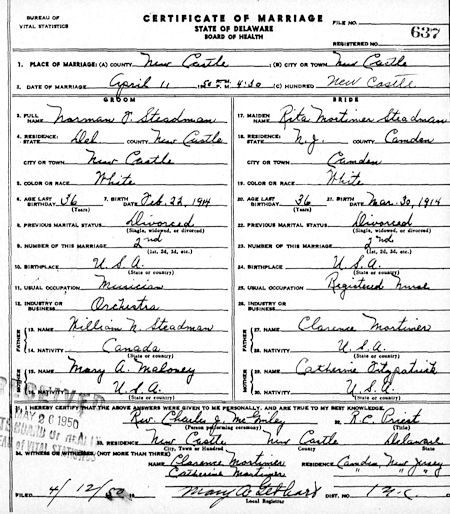 BUREAU OF
VITAL STATISTICS
CERTIFICATE OF MARRIAGE
STATE OF DELAWARE
BOARD OF HEALTH
FILE NO.
REGISTERED NO.
637
1. PLACE OF MARRIAGE: (A) COUNTY New Castle (B) CITY OR TOWN New Castle
2. DATE OF MARRIAGE April 11 1950 4:30 (C) HUNDRED New Castle
GROOM
3. FULL NAME Norman J. Steadman
4. RESIDENCE: STATE Del. COUNTY New Castle
CITY OR TOWN New Castle
5. COLOR OR RACE White
6. AGE LAST BIRTHDAY 36 (Years) 7. BIRTH DATE Feb. 22, 1914
8. PREVIOUS MARITAL STATUS Divorced
(Single, widowed, or divorced)
9. NUMBER OF THIS MARRIAGE 2nd
(1st, 2d, 3d, etc.)
10. BIRTHPLACE U.S.A.
(State or country)
11. USUAL OCCUPATION Musician
12. INDUSTRY OR BUSINESS Orchestra
FATHER
13. NAME William N. Steadman
14. NATIVITY Canada
(State or country)
MOTHER
15. NAME Mary A. Maloney
NATIVITY U.S.A.
BRIDE
17. MAIDEN NAME Rita Mortimer Steadman
18. RESIDENCE: STATE N.J. COUNTY Camden
CITY OR TOWN Camden
19. COLOR OR RACE White
20. AGE LAST BIRTHDAY 36 (Years) 21. BIRTH DATE Mar. 30, 1914
22. PREVIOUS MARITAL STATUS Divorced
(Single, widowed or divorced)
23. NUMBER OF THIS MARRIAGE 2nd
(1st, 2d, 3d, etc.)
24. BIRTHPLACE U.S.A.
(State or country)
25. USUAL OCCUPATION Registered Nurse
26. INDUSTRY OR BUSINESS
FATHER
27. NAME Clarence Mortimer
28. NATIVITY U.S.A.
(State or country)
MOTHER
29. NAME Catherine Fitzpatrick
30. NATIVITY U.S.A.
(State or country)
I HEREBY CERTIFY THAT THE ABOVE ANSWERS WERE GIVEN TO ME PERSONALLY, AND ARE TRUE TO MY BEST KNOWLEDGE.
Rev. Charles J. 32. R.C. Priest
(Person performing ceremony) (Title)
33. RESIDENCE New Castle New Castle Delaware
City, Town or Hundred County State
34. WITNESS OR WITNESSES (NOT MORE THAN THREE)
NAME Clarence Mortimer RESIDENCE Camden, New Jersey
NAME Catherine Mortimer " " "
FILED 4/12/50 Mary DIST. NO.
Local Registrar
RECEIVED
MAY 26 1950